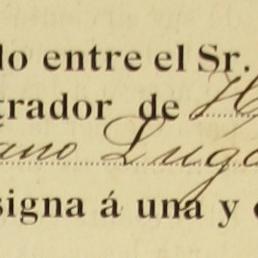 do entre el Sr.
trador de H
ano Luga
signa á una y